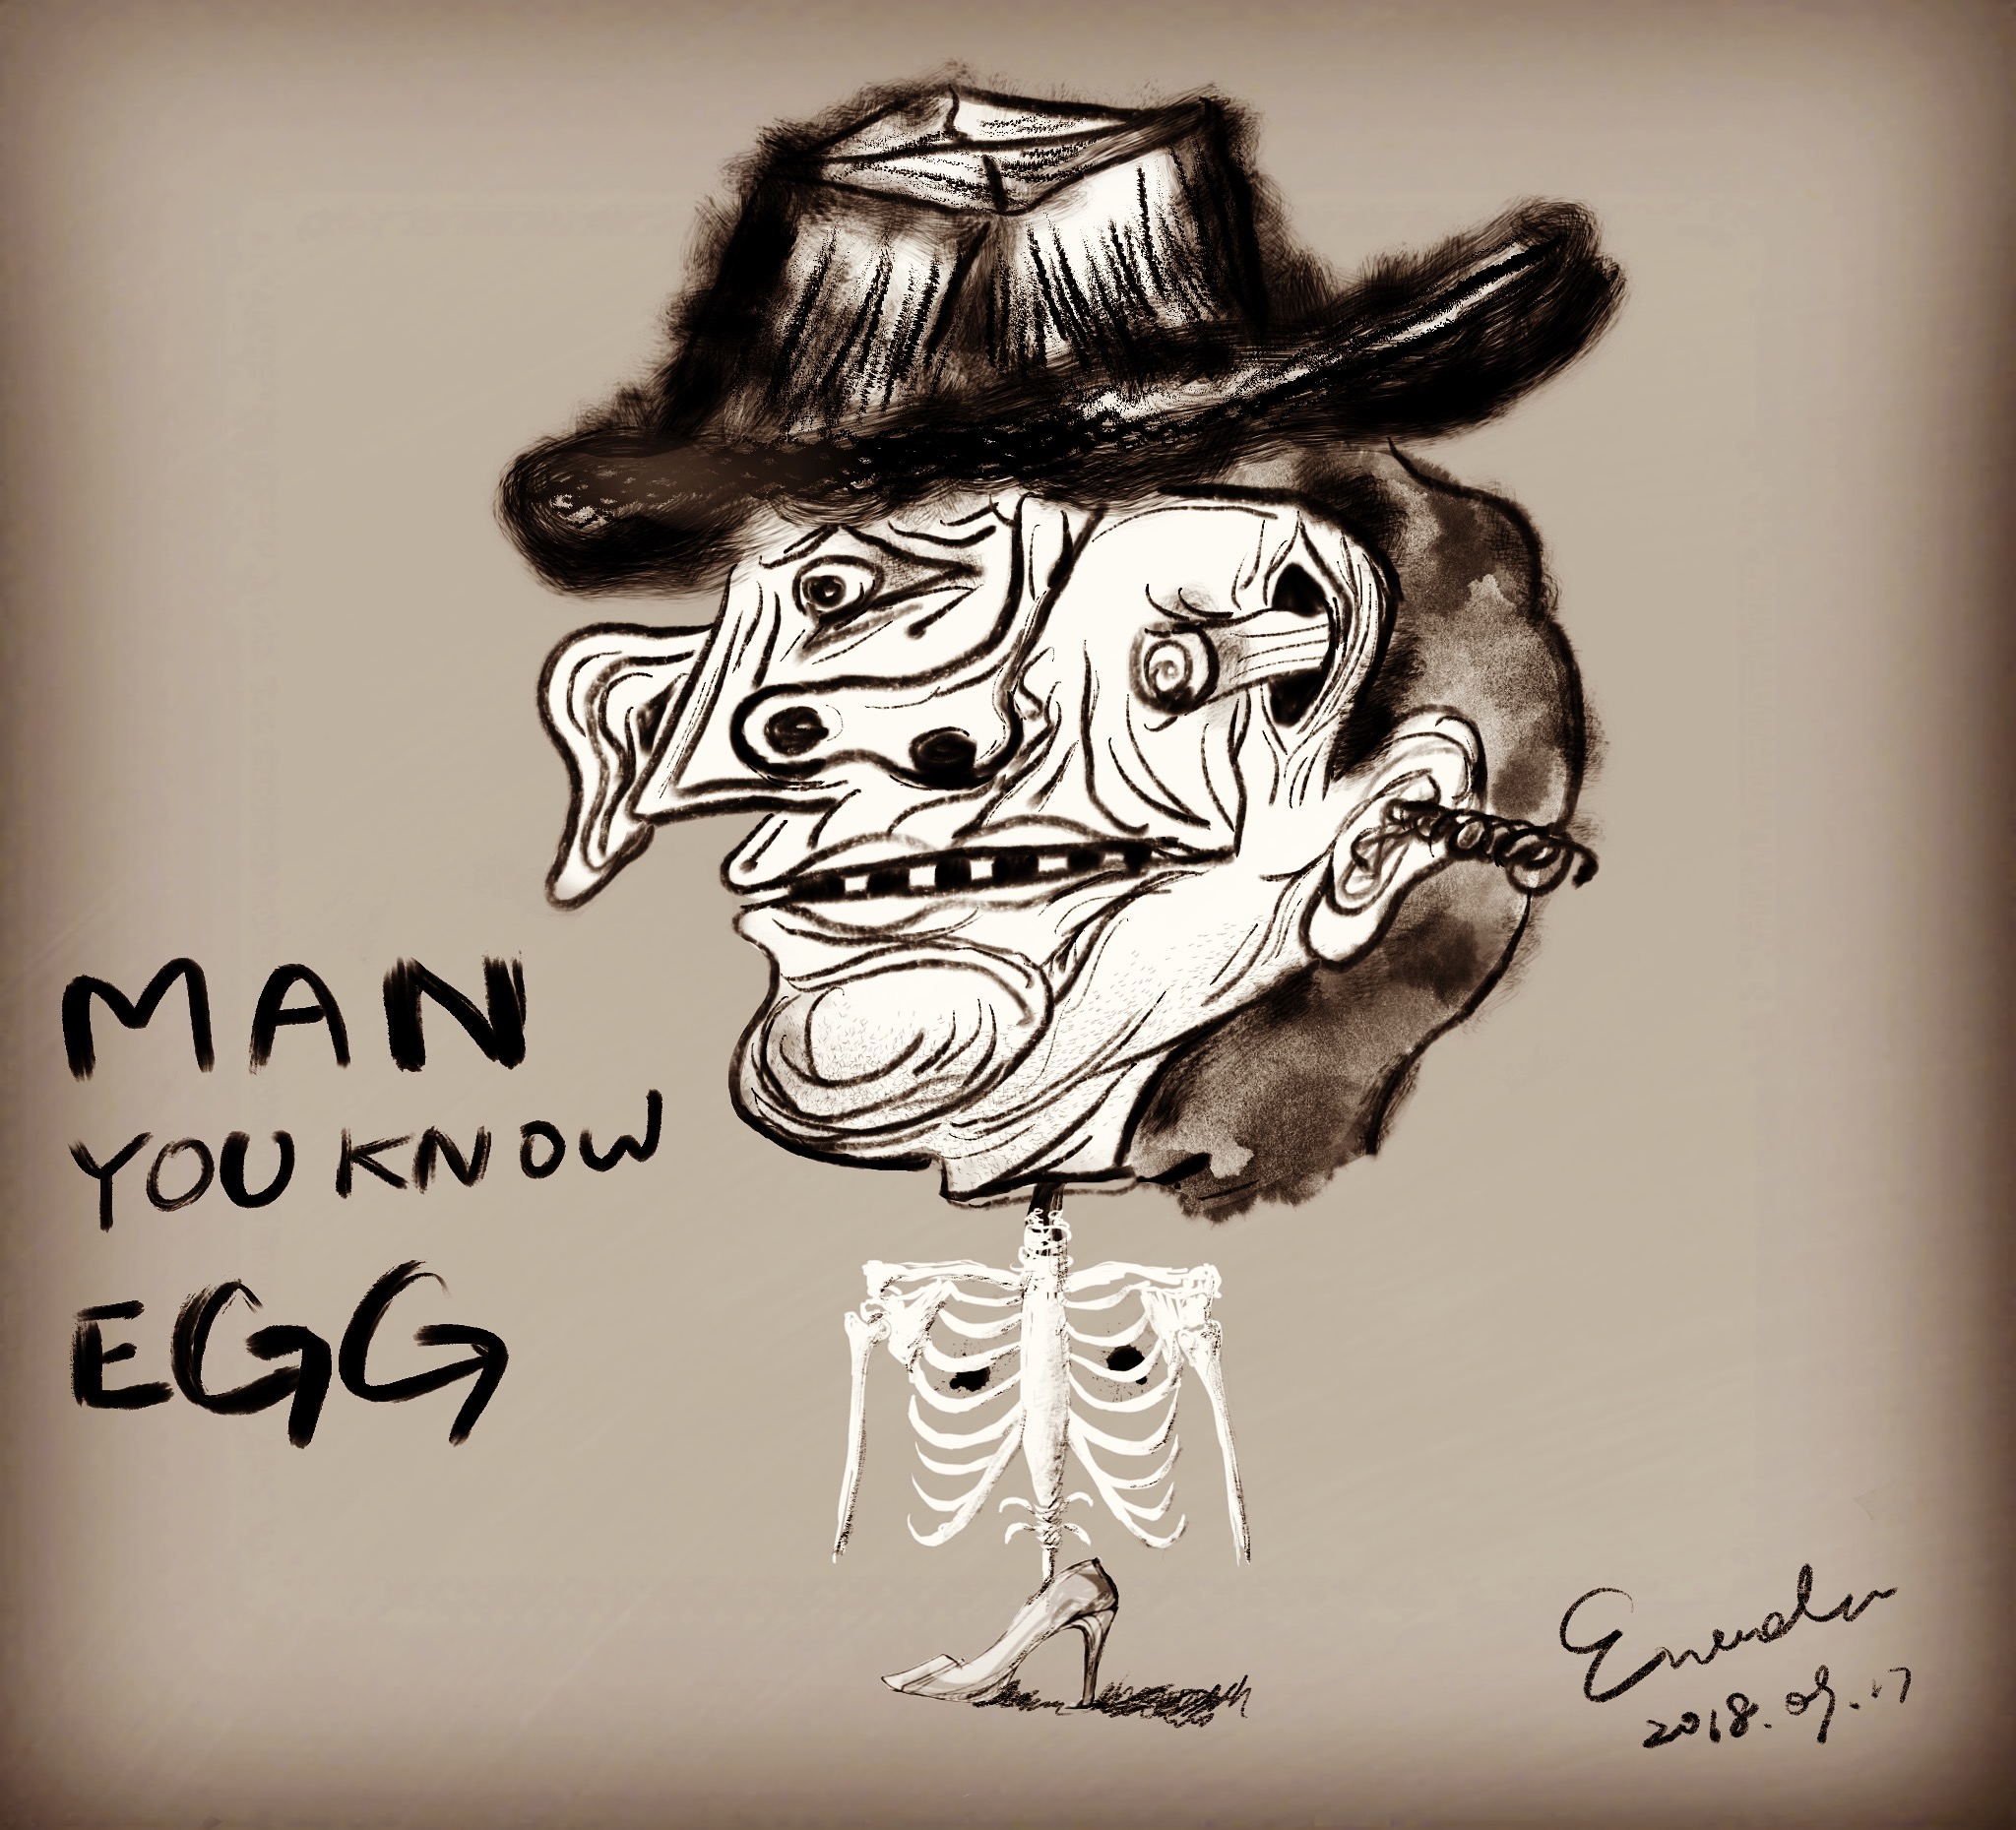 MAN
YOU KNOW
EGG
2018.09.17